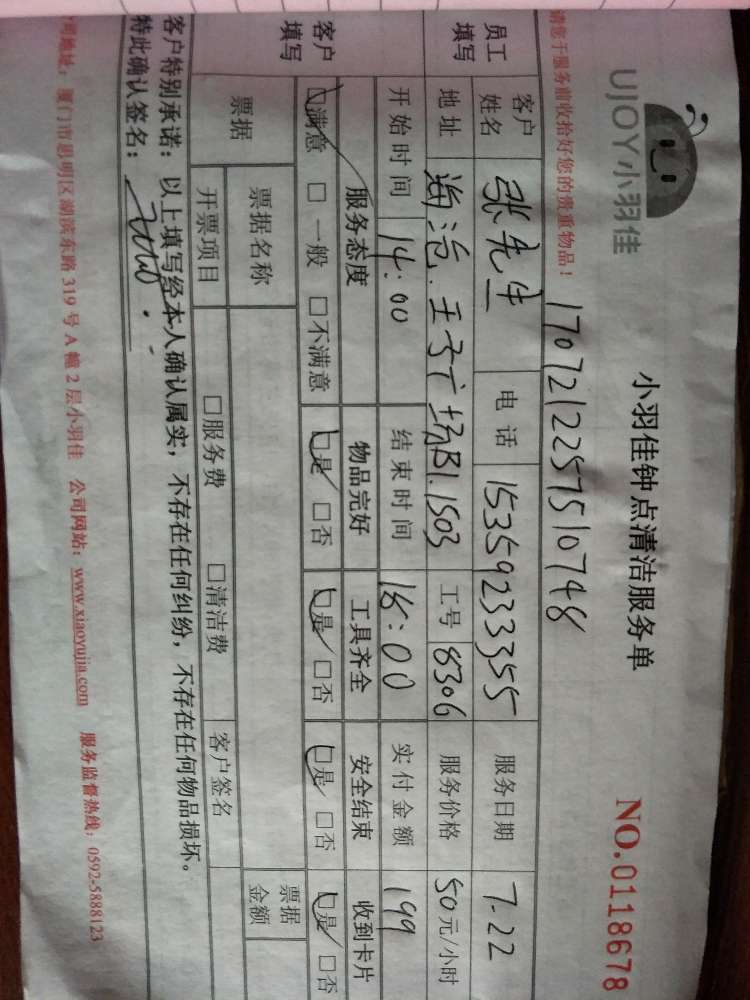 UJOY小羽佳
小羽佳钟点清洁服务单
NO.0118678
请您于服务前收拾好您的贵重物品！
17072122575107 48
员工填写
客户姓名 张先生 电话 15359233355 服务日期 7.22
地址 海沧.王子广场B1.1503 工号 8306 服务价格 50元/小时
开始时间 14:00 结束时间 18:00 实付金额 199
客户填写
服务态度 物品完好 工具齐全 安全结束 收到卡片
☑满意 □一般 □不满意 ☑是 □否 ☑是 □否 ☑是 □否 ☑是 □否
票据
票据名称 票据金额
开票项目 □服务费 □清洁费 客户签名
客户特别承诺：以上填写经本人确认属实，不存在任何纠纷，不存在任何物品损坏。
特此确认签名：
公司地址：厦门市思明区湖滨东路319号A幢2层小羽佳 公司网站：www.xiaoyujia.com 服务监督热线：0592-5888123